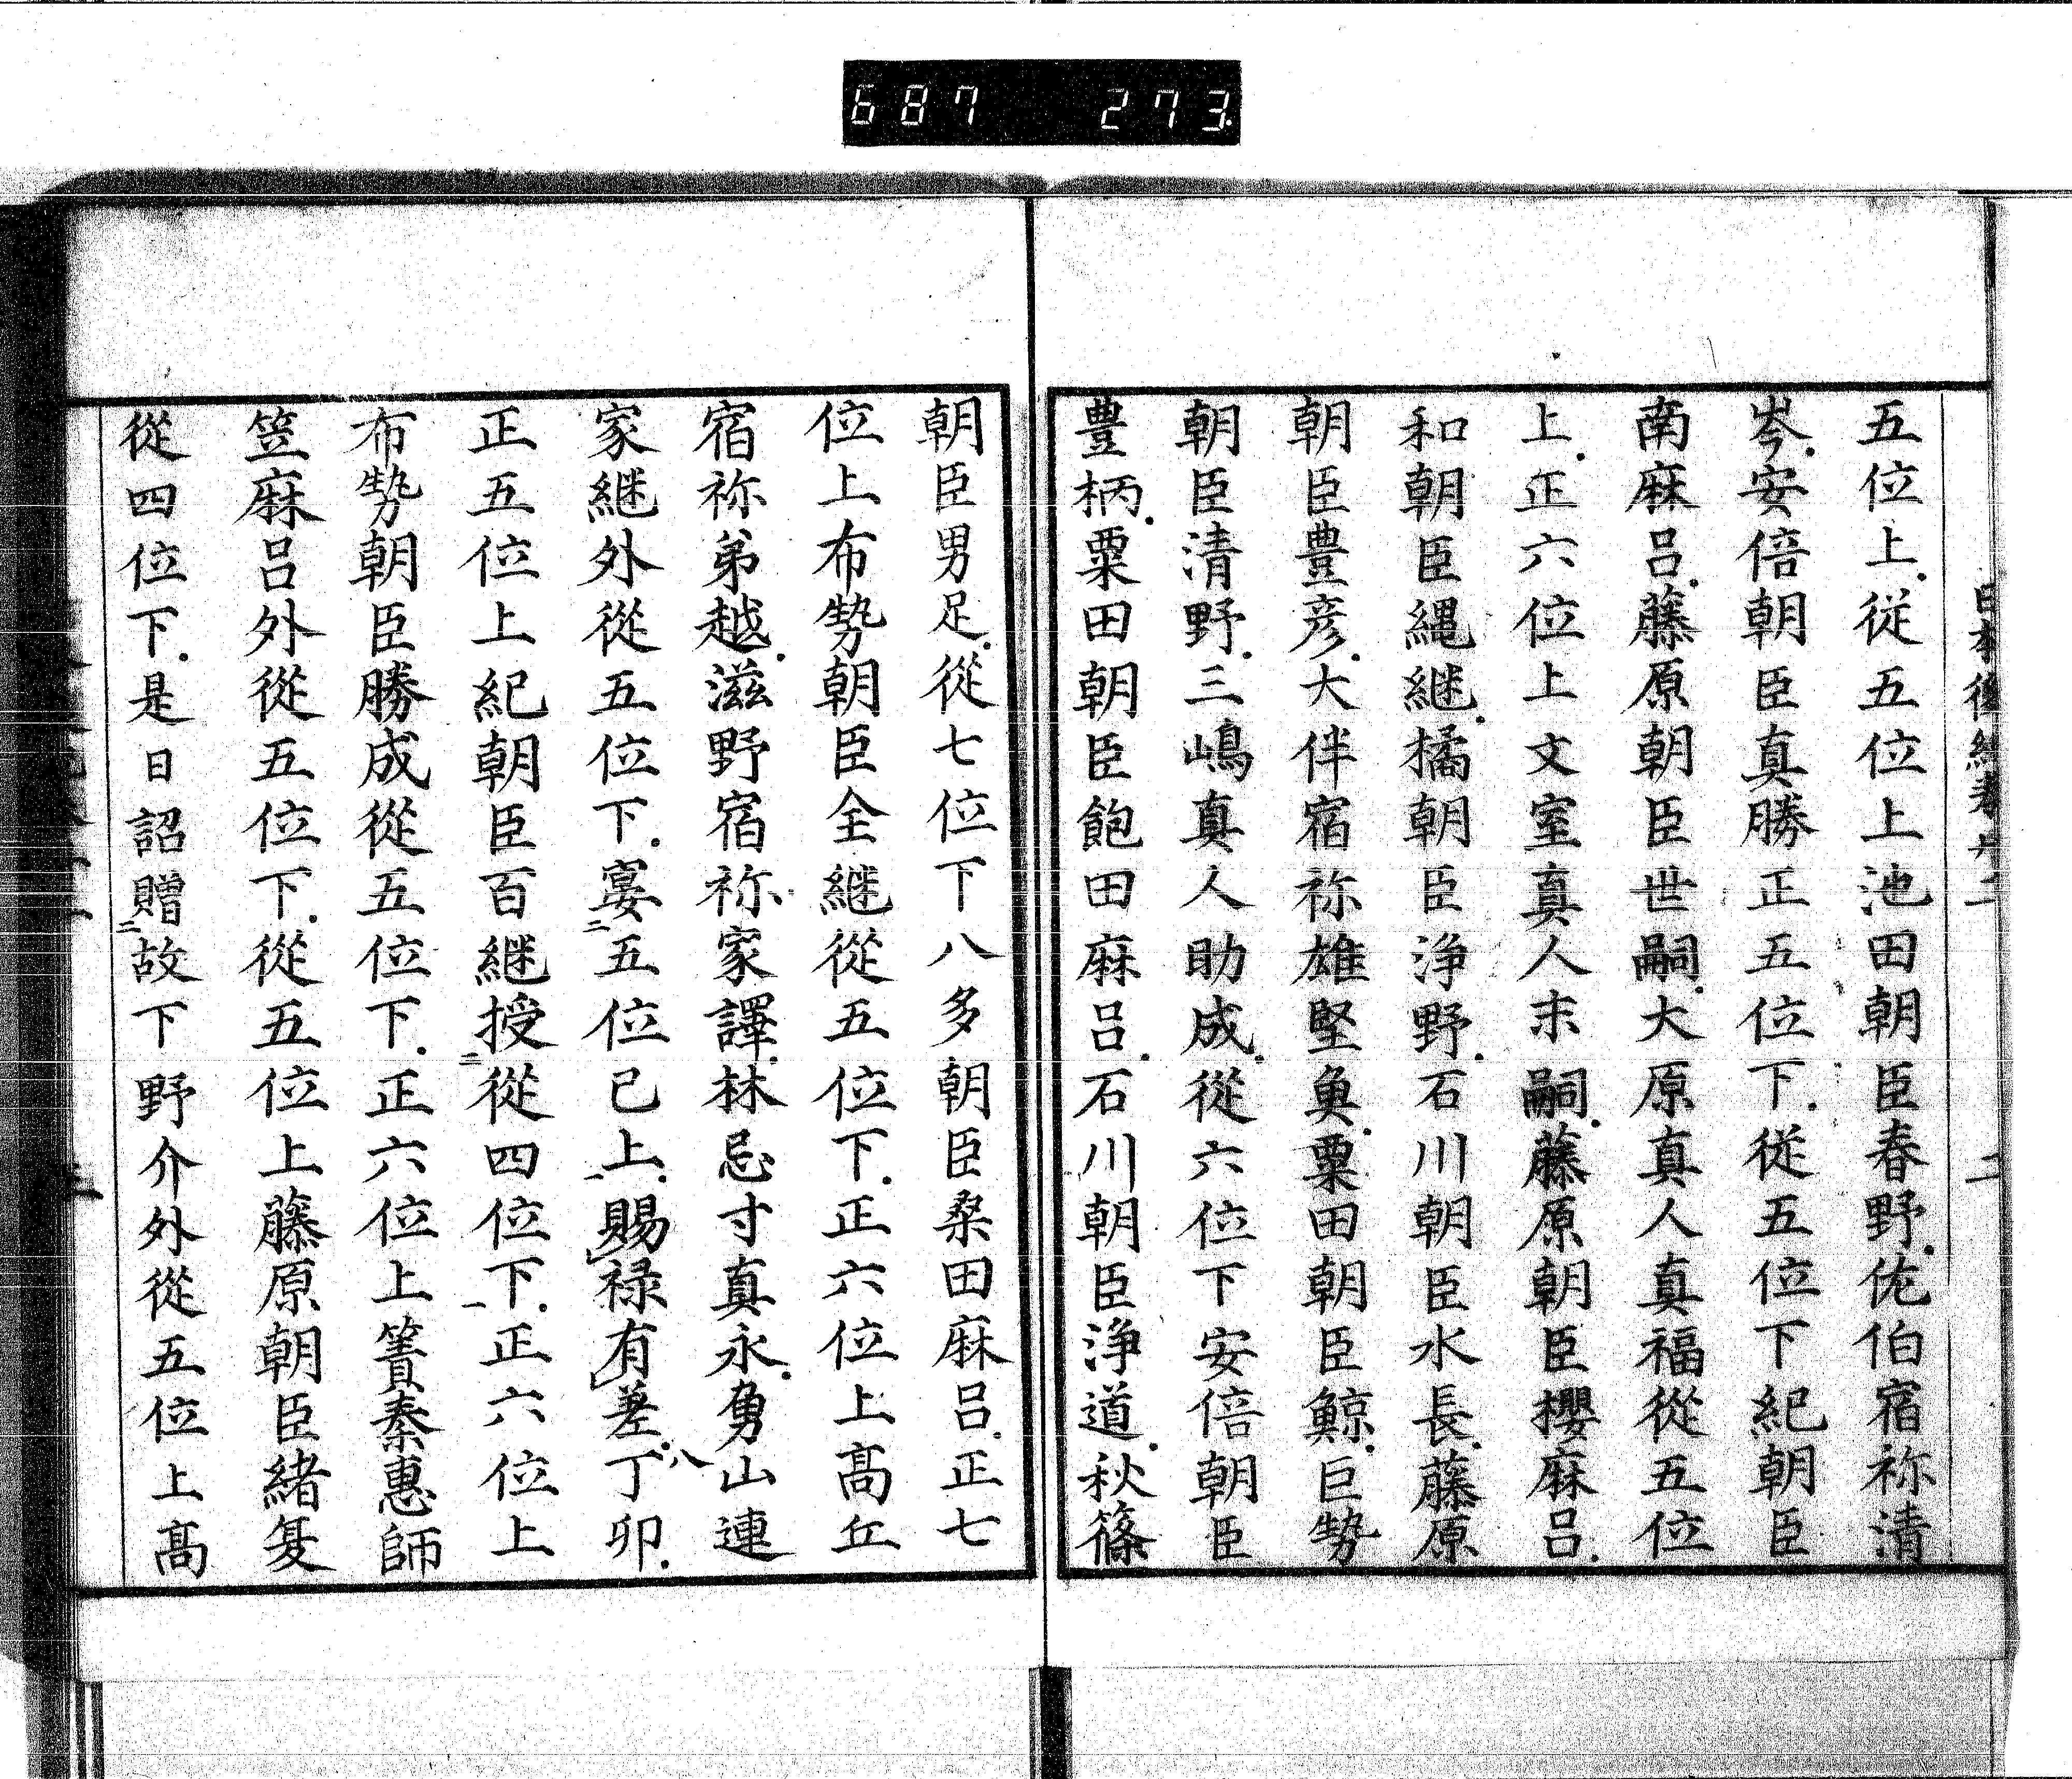 687 273
五位上從五位上池田朝臣春野佐伯宿祢清
岑安倍朝臣真勝正五位下從五位下紀朝臣
南麻呂藤原朝臣世嗣大原真人真福從五位
上正六位上文室真人末嗣藤原朝臣櫻麻呂
和朝臣縄継橘朝臣浄野石川朝臣水長藤原
朝臣豊彦大伴宿祢雄堅魚粟田朝臣鯨巨勢
朝臣清野三嶋真人助成從六位下安倍朝臣
豊柄粟田朝臣飽田麻呂石川朝臣浄道秋篠
朝臣男足從七位下八多朝臣桑田麻呂正七
位上布勢朝臣全継從五位下正六位上髙丘
宿祢弟越滋野宿祢家譯林忌寸真永勇山連
家継外從五位下宴二五位已上一賜禄有差丁卯八
正五位上紀朝臣百継授二從四位下一正六位上
布勢朝臣勝成從五位下正六位上簀秦惠師
笠麻呂外從五位下從五位上藤原朝臣緒夏
從四位下是日詔贈二故下野介外從五位上髙